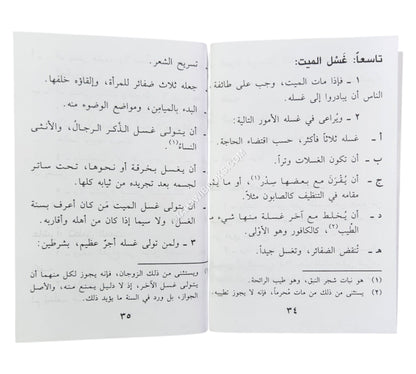 تاسعاً: غَسْل الميت:
١ ـ فإذا مات الميت، وجب على طائفة
الناس أن يبادروا إلى غسله.
٢ ـ ويُراعى في غسله الأمور التالية:
أ ـ غسله ثلاثاً فأكثر، حسب اقتضاء الحاجة.
ب ـ أن تكون الغسلات وتراً.
ج ـ أن يُقرَن مع بعضها سِدْر(١)، أو ما يقوم
مقامه في التنظيف كالصابون مثلاً.
د ـ أن يُخلط مع آخر غسلة منها شيء من
الطِّيب(٢)، كالكافور وهو الأوْلى.
هـ ـ تُنقض الضفائر، وتغسل جيداً.
(١) هو نبات شجر النبق، وهو طيب الرائحة.
(٢) يستثنى من ذلك من مات مُحرماً، فإنه لا يجوز تطييبه.
٣٤
تسريح الشعر.
جعله ثلاث ضفائر للمرأة، وإلقاؤه خلفها.
البدء بالميامِن، ومواضع الوضوء منه.
أن يتولى غسل الذَّكر الرجالُ، والأنثى
النساءُ(١).
أن يغسل بخرقة أو نحوها، تحت ساتر
لجسمه بعد تجريده من ثيابه كلها.
أن يتولى غسل الميت مَن كان أعرف بسنة
الغسل، ولا سيما إذا كان من أهله وأقاربه.
٣ ـ ولمن تولى غسله أجرٌ عظيم، بشرطين:
(١) ويستثنى من ذلك الزوجان، فإنه يجوز لكل منهما أن
يتولى غسل الآخر، إذ لا دليل يمنع منه، والأصل
الجواز، بل ورد في السنة ما يؤيد ذلك.
٣٥